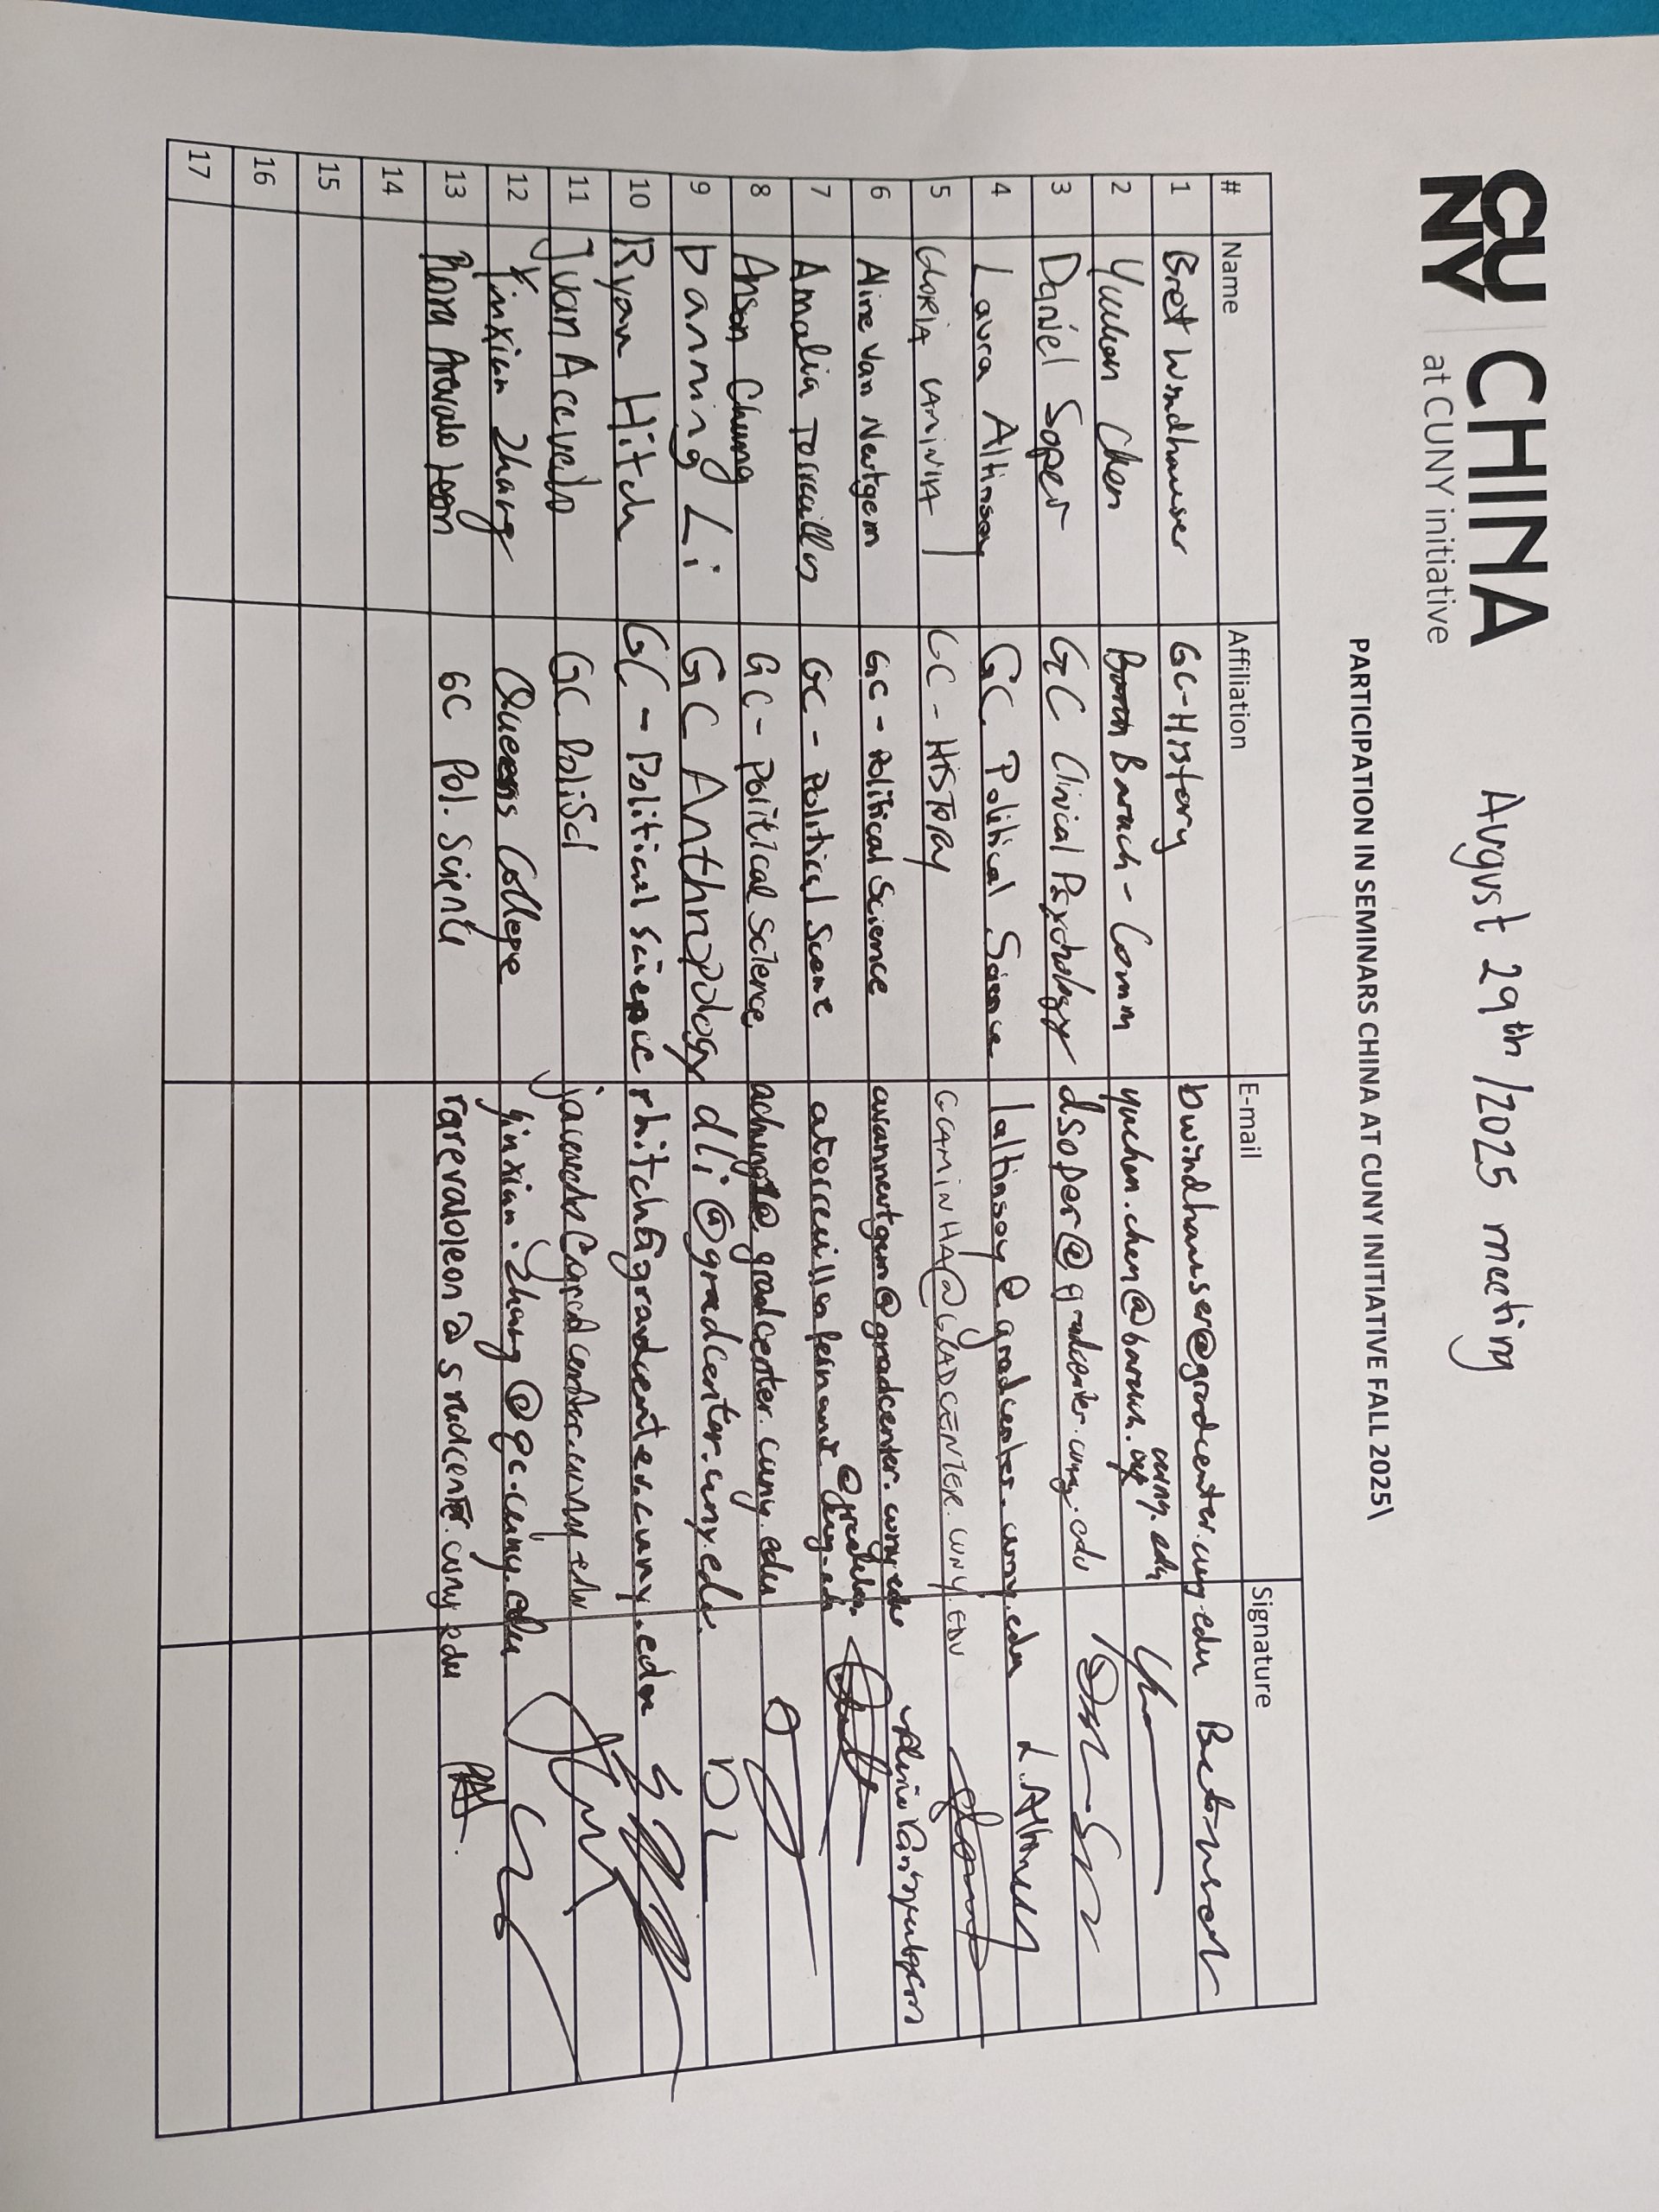 CUNY CHINA August 29th/2025 meeting
at CUNY initiative
PARTICIPATION IN SEMINARS CHINA AT CUNY INITIATIVE FALL 2025\
# Name Affiliation E-mail Signature
1 Bret Windhauser GC-History bwindhauser@gradcenter.cuny.edu
2 Yuchen Chen Baruch - Comm yuchen.chen@baruch.cuny.edu
3 Daniel Soper GC Clinical Psychology dsoper@gradcenter.cuny.edu
4 Laura Altinsoy GC Political Science laltinsoy@gradcenter.cuny.edu L.Altinsoy
5 GLORIA CAMINHA GC - HISTORY GCAMINHA@GRADCENTER.CUNY.EDU
6 Aline Van Neutgem GC - Political Science avanneutgem@gradcenter.cuny.edu
7 Amalia GC - Political Science
8 Anson Chung GC - Political Science gradcenter.cuny.edu
9 Danning Li GC Anthropology dli@gradcenter.cuny.edu DL
10 Ryan Hitch GC - Political Science rhitch@gradcenter.cuny.edu
11 Juan Acevedo GC PoliSci jacevedo@gradcenter.cuny.edu
12 Yinxian Zhang Queens College yinxian.zhang@qc.cuny.edu
13 Arevalo Leon GC Pol. Science rarevaloleon@gradcenter.cuny.edu
14
15
16
17